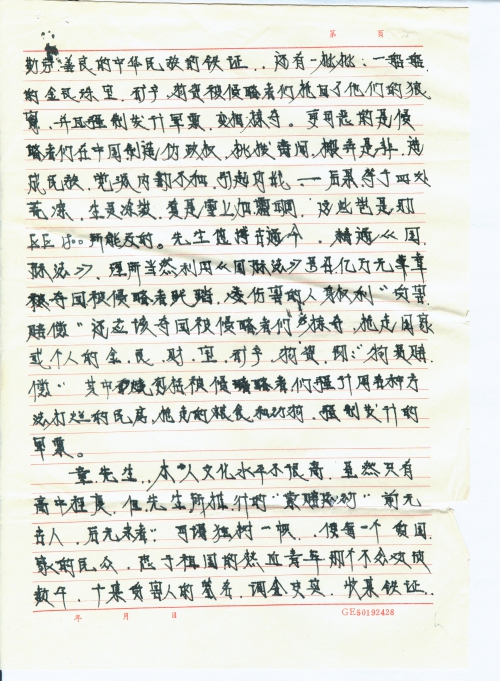 第 页
勤劳善良的中华民族的铁证..还有一批批、一船船
的金民珠宝、矿产、物资被侵略者们抢回了他们的狼
窝,并且强制发行军票,变相掠夺。更可恶的是侵
略者们在中国制造伪政权,挑拨离间,搬弄是非,造
成民族、党派内部不和,引起内机,一后果等于四处
荒凉,生灵涂炭,算是雪上加霜啊,这些岂是那
所能及的。先生值博古通今,精通《国
际法》,理所当然利用《国际法》
被夺国被侵略者 赔,凌伤害的人 权利"受害
赔偿"还应该夺国被侵略者们 掠夺,抢走国家
或个人的金、民、财、宝、矿产、物资,即:"物资赔
偿"其中 包括被侵略者们强行用各种方
法打烂的民房,抢走的粮食和 物,强制发行的
军票。
童先生,本人文化水平不很高,虽然只有
高中程度,但先生所推行的"索赔 "前无
古人,后无来者;可谓独树一帜,使每一个爱国
家的民众,忠于祖国的热血青年那个不会效仿
数年,十集受害人的签名,调金史实,收集铁证..
年 月 日
GE50192428